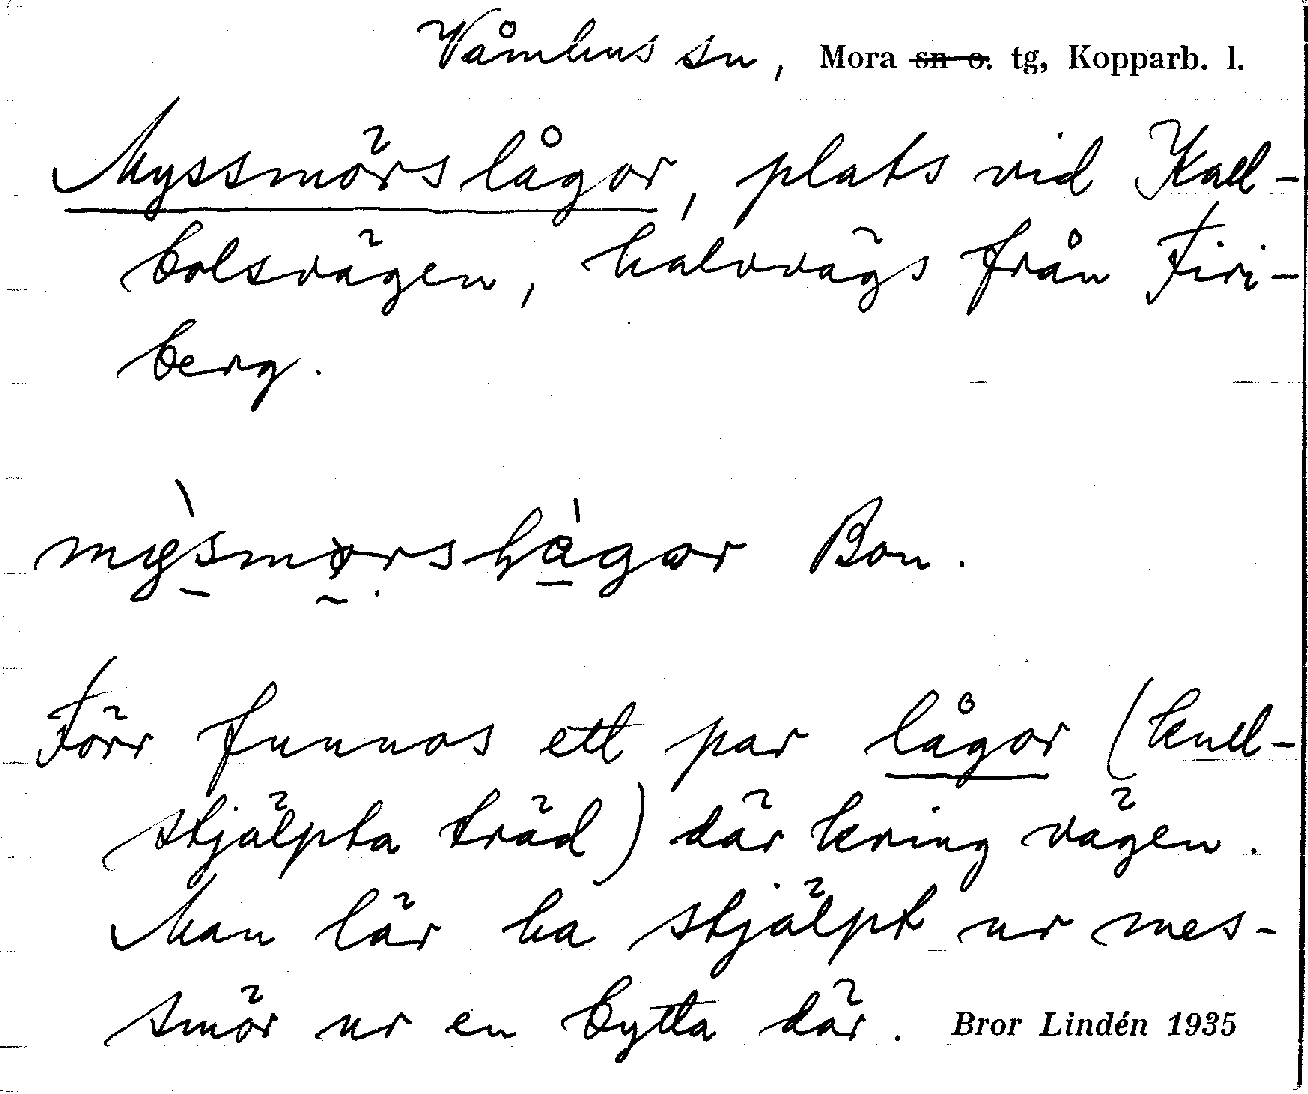 Våmhus sn, Mora sn o. tg, Kopparb. l.
Myssmörslågor, plats vid Kall-
bolsvägen, halvvägs från Firi-
berg.
Bon.
Förr funnos ett par lågor (kull-
stjälpta träd) där kring vägen.
Man lär ha stjälpt ur mes-
smör ur en bytta där. Bror Lindén 1935